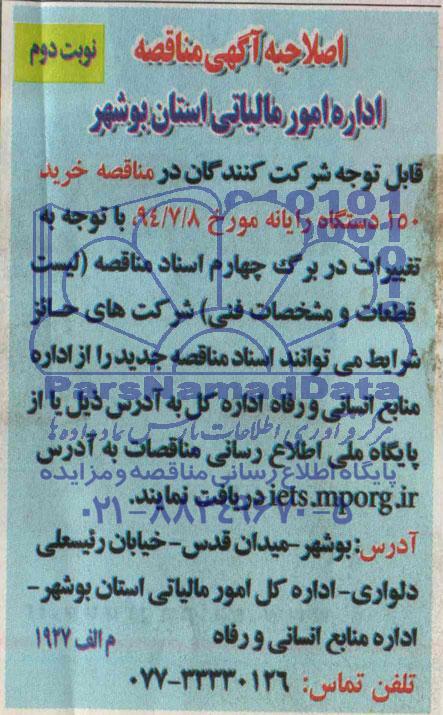 اصلاحیه آگهی مناقصه
نوبت دوم
اداره امور مالیاتی استان بوشهر
قابل توجه شرکت کنندگان در مناقصه خرید
۱۵۰ دستگاه رایانه مورخ ۹۴/۷/۸، با توجه به
تغییرات در برگ چهارم اسناد مناقصه (لیست
قطعات و مشخصات فنی) شرکت های حائز
شرایط می توانند اسناد مناقصه جدید را از اداره
ParsNamadData
منابع انسانی و رفاه اداره کل به آدرس ذیل یا از
مرکز فرآوری اطلاعات پارس نماد داده ها
پایگاه ملی اطلاع رسانی مناقصات به آدرس
پایگاه اطلاع رسانی مناقصه و مزایده
iets.mporg.ir دریافت نمایند.
۰۲۱-۸۸۳۴۹۶۷۰-۵
آدرس: بوشهر-میدان قدس-خیابان رئیسعلی
دلواری-اداره کل امور مالیاتی استان بوشهر-
اداره منابع انسانی و رفاه
م الف ۱۹۲۷
تلفن تماس: ۰۷۷-۳۳۳۳۰۱۲۶